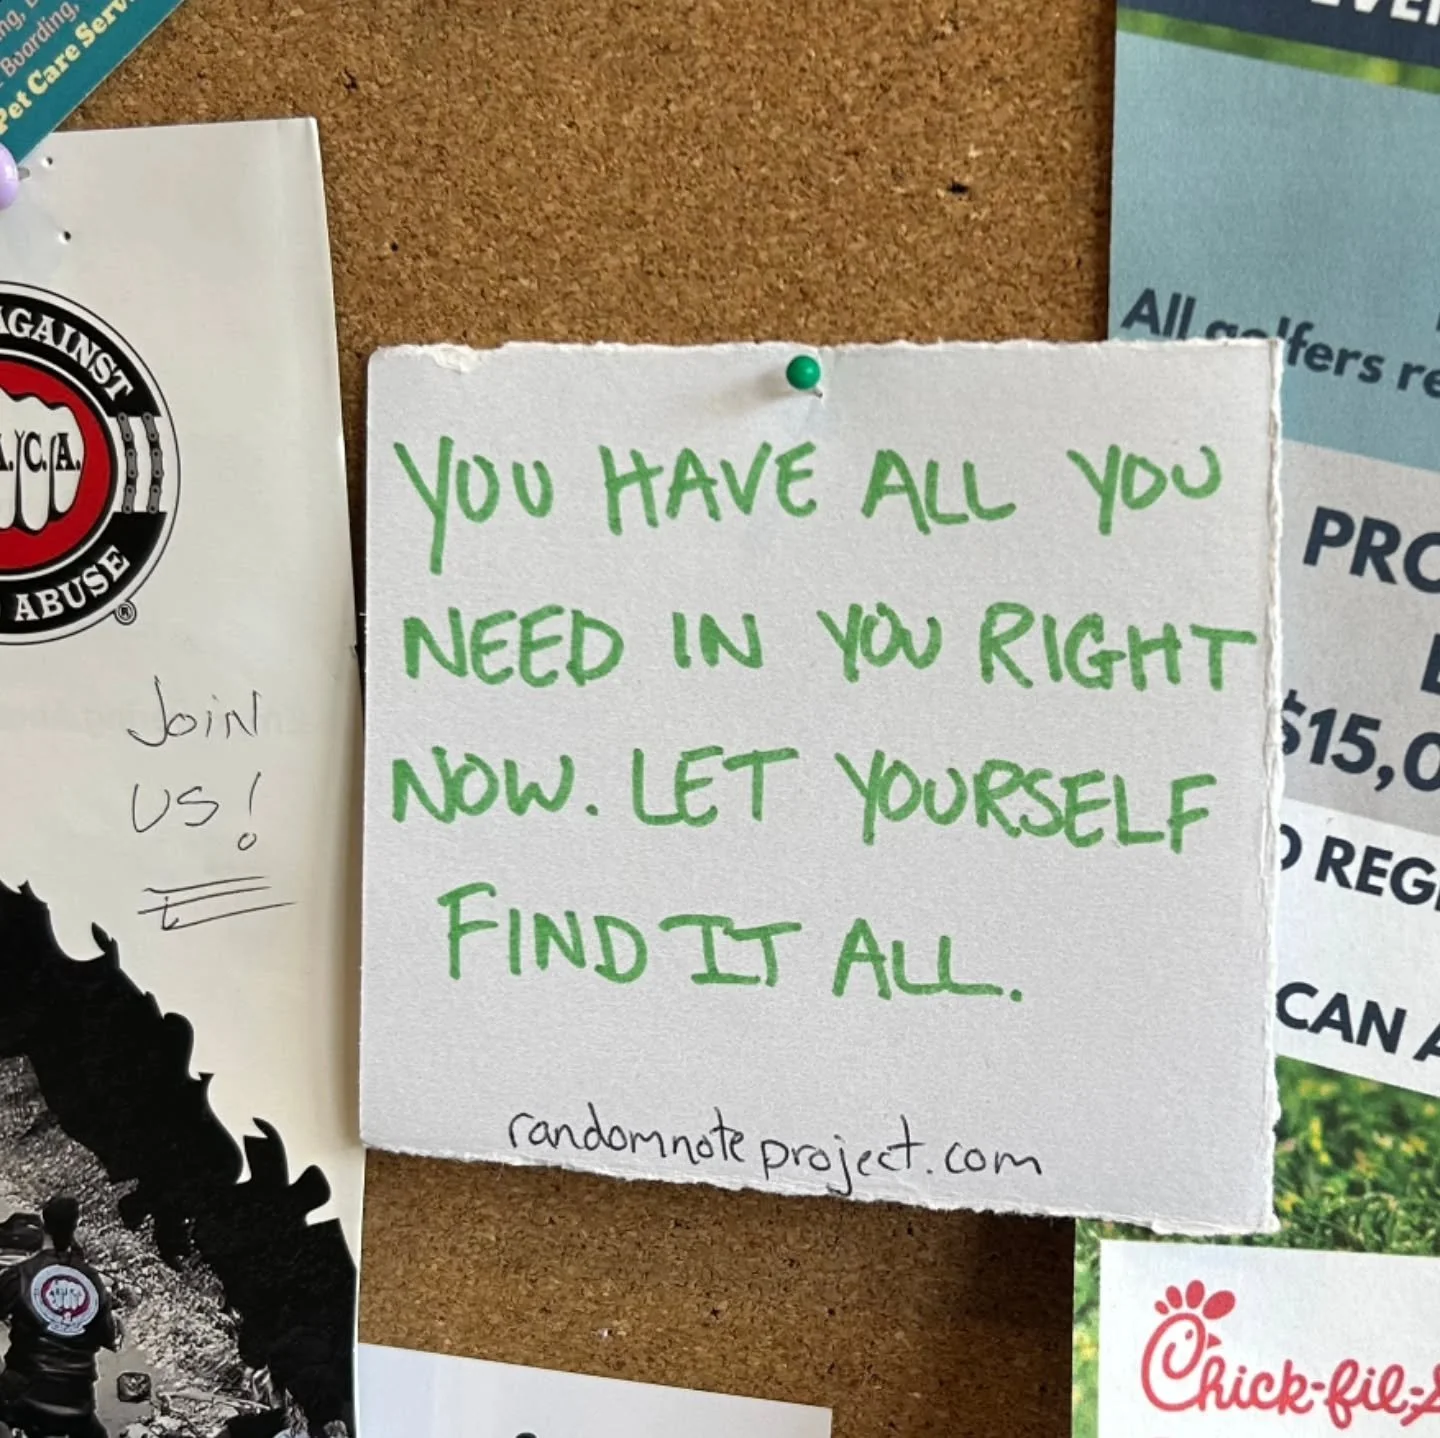 Boarding,
Pet Care Serv
AGAINST
.C.A.
ABUSE
®
JOIN
US!
YOU HAVE ALL YOU
NEED IN YOU RIGHT
NOW. LET YOURSELF
FIND IT ALL.
randomnoteproject.com
All golfers re
PRO
$15,0
REG
CAN A
Chick-fil-